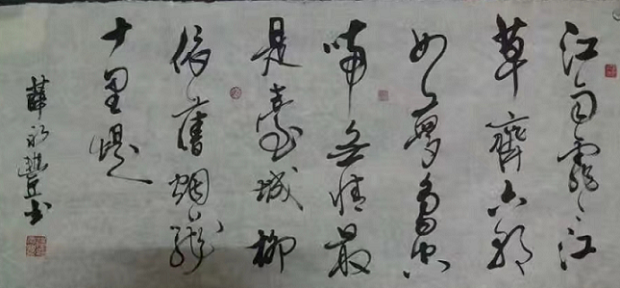 江雨霏〻江
草齊六朝
如夢鳥空
啼無情最
是臺城柳
依舊烟籠
十里堤
薛書